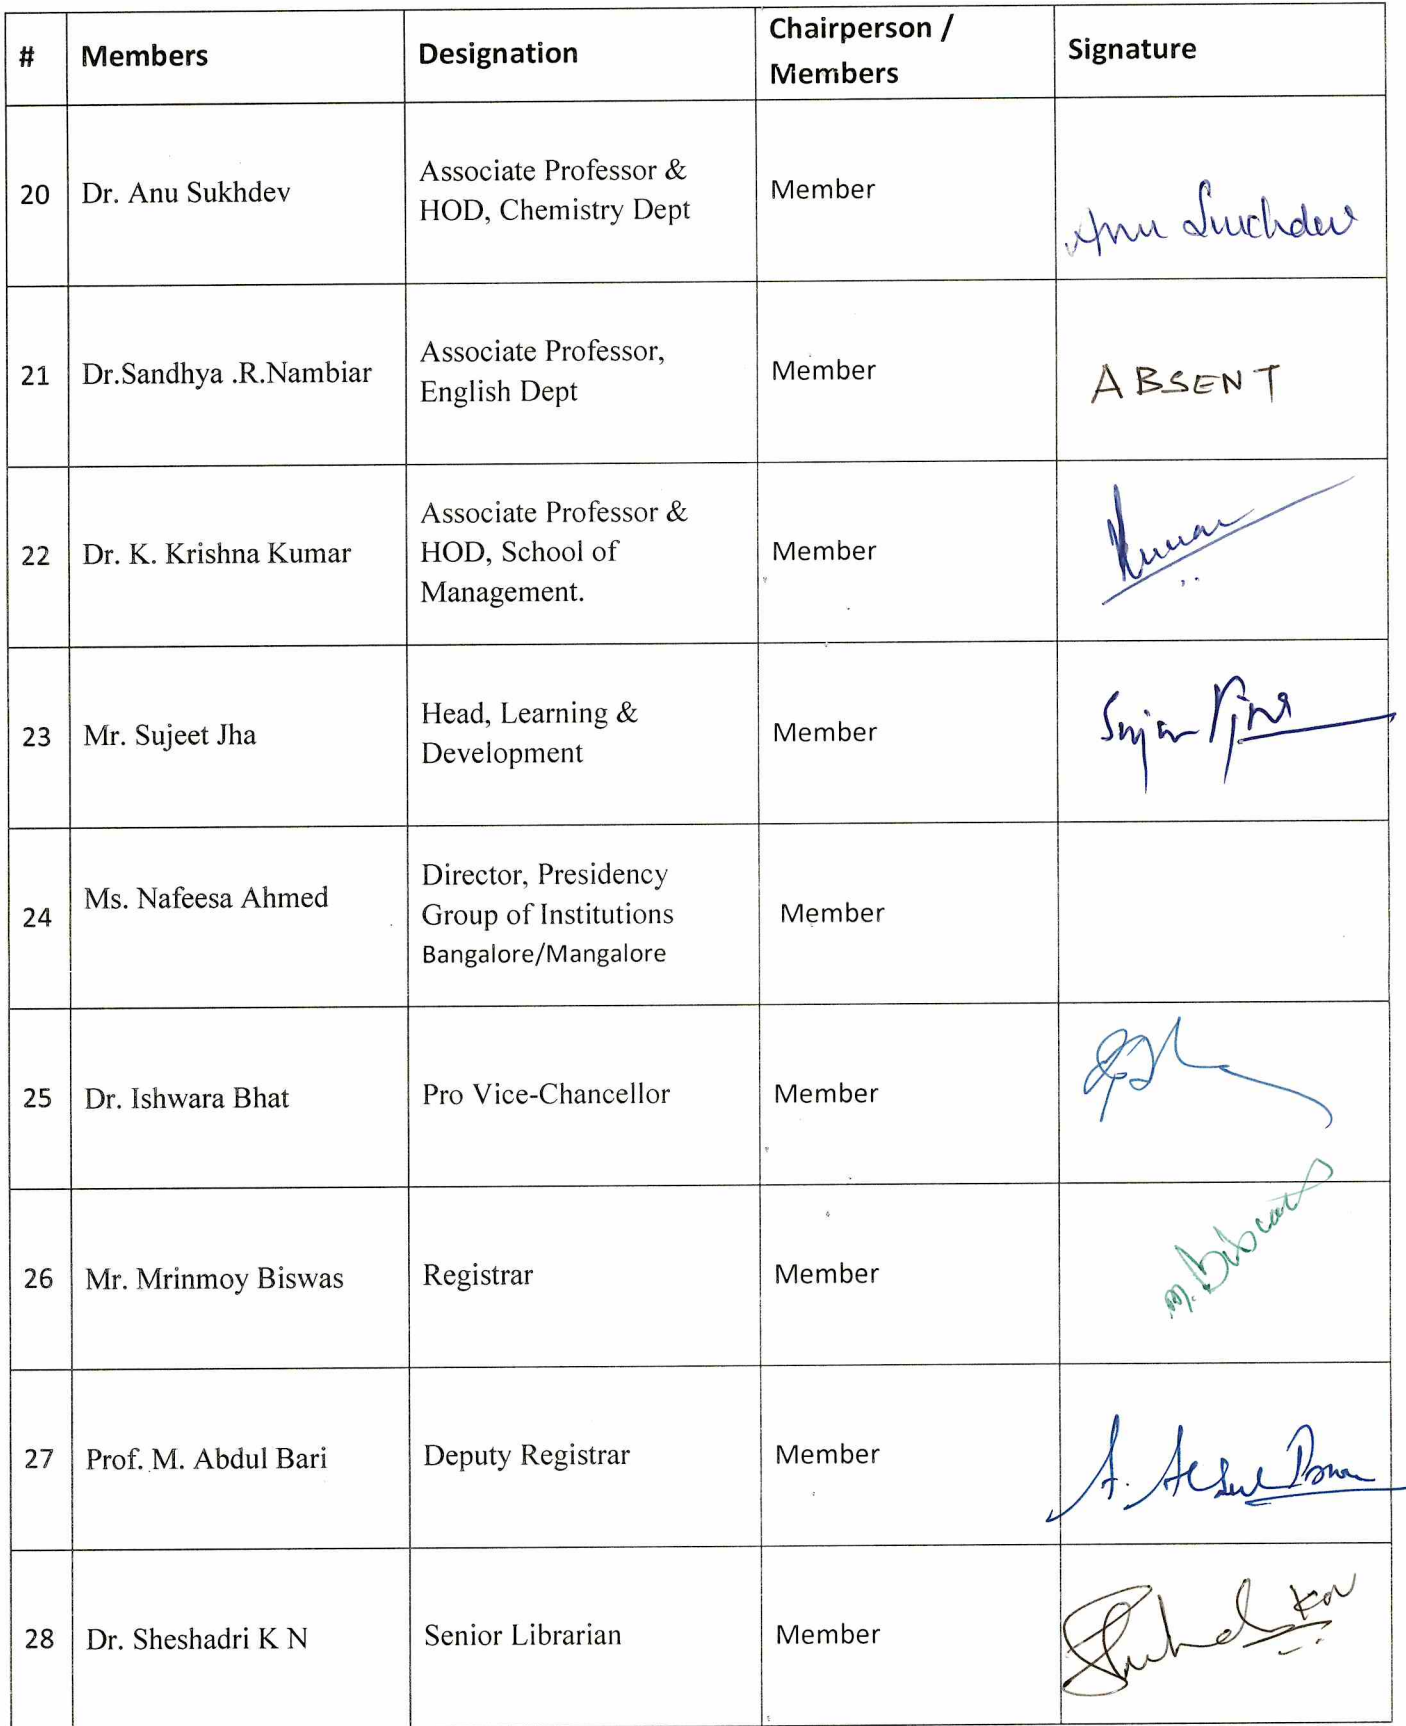 # Members Designation Chairperson / Members Signature
20 Dr. Anu Sukhdev Associate Professor & HOD, Chemistry Dept Member Anu Sukhdev
21 Dr.Sandhya .R.Nambiar Associate Professor, English Dept Member ABSENT
22 Dr. K. Krishna Kumar Associate Professor & HOD, School of Management. Member Kumar
23 Mr. Sujeet Jha Head, Learning & Development Member
24 Ms. Nafeesa Ahmed Director, Presidency Group of Institutions Bangalore/Mangalore Member
25 Dr. Ishwara Bhat Pro Vice-Chancellor Member
26 Mr. Mrinmoy Biswas Registrar Member
27 Prof. M. Abdul Bari Deputy Registrar Member
28 Dr. Sheshadri K N Senior Librarian Member